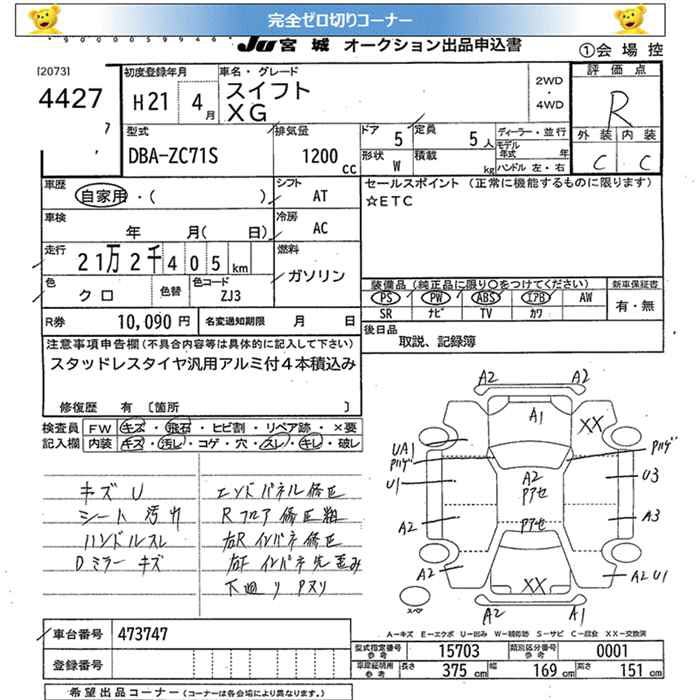 完全ゼロ切りコーナー
JU 宮城 オークション出品申込書
①会場控
[2073]
4427
初度登録年月 H21 4月
車名・グレード スイフト XG
2WD・4WD
評価点 R
型式 DBA-ZC71S
排気量 1200 cc
ドア 5
定員 5人
形状 W
積載 kg
ディーラー・並行
モデル年式 年
ハンドル 左・右
外装 C
内装 C
車歴 自家用・( )
シフト AT
車検 年 月( 日)
冷房 AC
走行 21万2千405km
燃料 ガソリン
色 クロ
色替
色コード ZJ3
R券 10,090円
名変通知期限 月 日
セールスポイント (正常に機能するものに限ります)
☆ETC
装備品(純正品に限り○をつけてください)
PS PW ABS エアB AW
SR ナビ TV カワ
新車保証書
有・無
後日品
取説、記録簿
注意事項申告欄(不具合内容等は具体的に記入して下さい)
スタッドレスタイヤ汎用アルミ付4本積込み
修復歴 有 〔箇所 〕
検査員 FW キズ・飛石・ヒビ割・リペア跡・×要
記入欄 内装 キズ・汚れ・コゲ・穴・スレ・キレ・破レ
キズ U
シート 汚れ
ハンドルスレ
Dミラー キズ
エンドパネル修正
Rフロア修正粗
右Rインパネ修正
右Fインパネ先歪み
下廻り Pヌリ
A2 A2
A1
XX
UA1
Pハゲ
Pハゲ
U1
A2
Pアセ
U3
A2
Pアセ
A3
A2
XX
A2 U1
スペ
A2
A1
A―キズ E―エクボ U―凹み W―補修跡 S―サビ C―腐食 XX―交換済
車台番号 473747
登録番号
型式指定番号 参考 15703
類別区分番号 参考 0001
車庫証明用 参考 長さ 375cm 幅 169cm 高さ 151cm
希望出品コーナー(コーナーは各会場により異なります。)